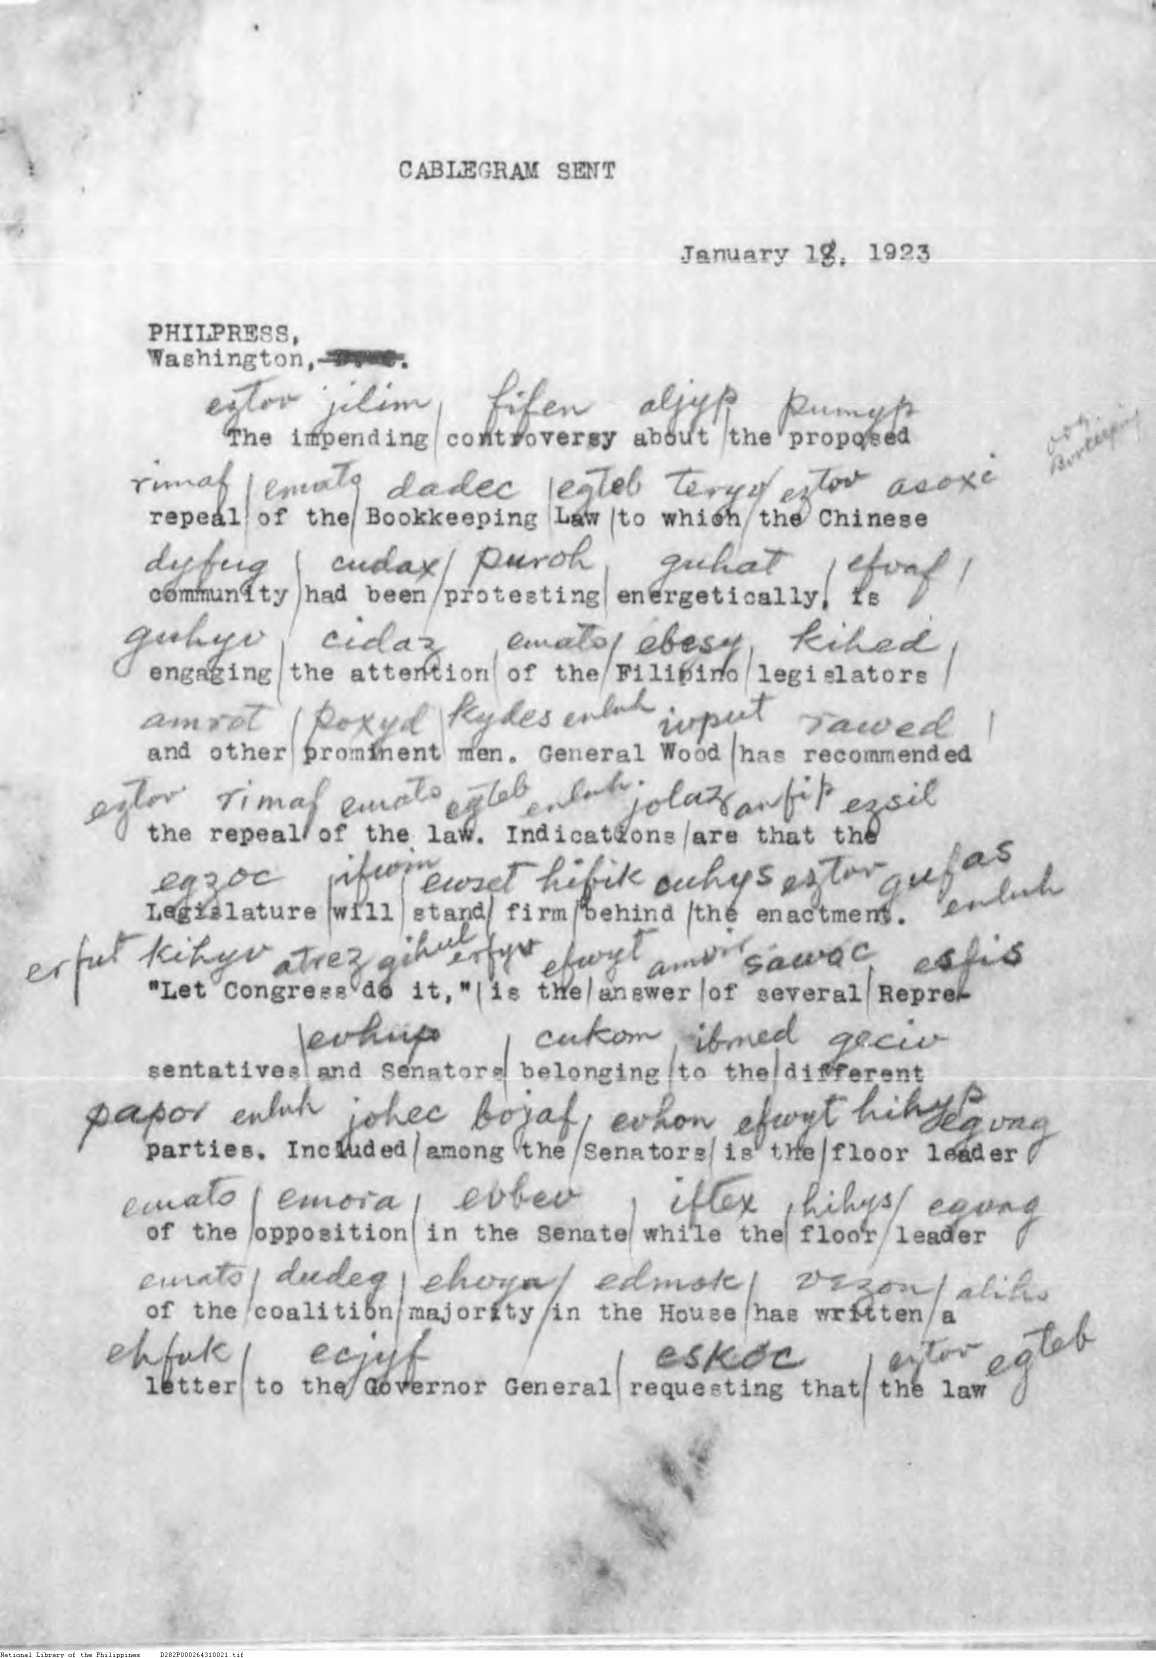 CABLEGRAM SENT
January 18, 1923
PHILPRESS,
Washington,
eztov jilim fifen aljyp pumyp
The impending controversy about the proposed
rimaf emato dadec egteb teryv eztov asoxi
repeal of the Bookkeeping Law to which the Chinese
dyfug cudax puroh guhat efvaf
community had been protesting energetically, is
guhyv cidaz emato ebesy kihed
engaging the attention of the Filipino legislators
amrot poxyd kydes enluh ivput rawed
and other prominent men. General Wood has recommended
eztov rimaf emato egteb enluh jolaz anfip ezsil
the repeal of the law. Indications are that the
egzoc ifwim ewzet hifik ouhys eztov gufas
Legislature will stand firm behind the enactment. enluh
erfut kihyv atrez gihul erfyv efwyt amvir sawoc esfis
"Let Congress do it," is the answer of several Repre-
evhup cukom ibmed geciv
sentatives and Senators belonging to the different
papor enluh johec bojaf evhon efwyt hihyp egvag
parties. Included among the Senators is the floor leader
emato emora evbev iftex hihys egvag
of the opposition in the Senate while the floor leader
emato dudeg ehvya edmok vezon aliho
of the coalition majority in the House has written a
ehfuk ecjyf eskoc eztov egteb
letter to the Governor General requesting that the law
National Library of the Philippines D282P000264310021.tif